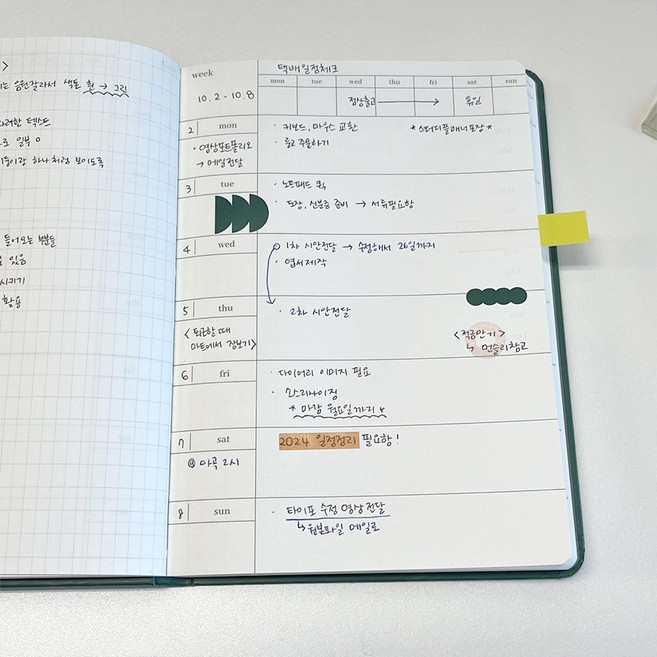 >
는 음원깔라서 색톤 흰 → 그린
러한 텍스트
로 일부 o
이랑 하나처럼 보이도록
들어오는 부분들
있음
시키기
활용
week
10. 2 - 10. 8
택배일정체크
mon tue wed thu fri sat sun
정상출고 → 휴일
2 mon
· 영상포트폴리오
→ 메일전달
· 키보드, 마우스 교환 *스터디플래너포장*
· 중고 주문하기
3 tue
· 노트패드 퀵
· 도장, 신분증 준비 → 서류필요함
4 wed
1차 시안전달 → 수정해서 26일까지
· 엽서제작
5 thu
<퇴근할때
마트에서 장보기>
· 2차 시안전달
<적금만기>
↳ 먼슬리참고
6 fri
· 다이어리 이미지 필요
· 2소리사이징
* 마감 월요일까지 *
7 sat
마곡 2시
2024 일정정리 필요함!
8 sun
· 타이포 수정 영상전달
↳ 원본파일 메일로